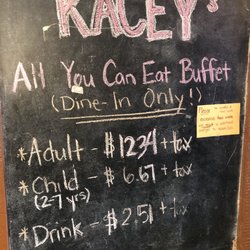 KACEY's
All You Can Eat Buffet
(Dine-In Only!)
*Adult - $12.34 + tax
*Child - $6.67 + tax
(2-7 yrs)
*Drink - $2.51 + tax